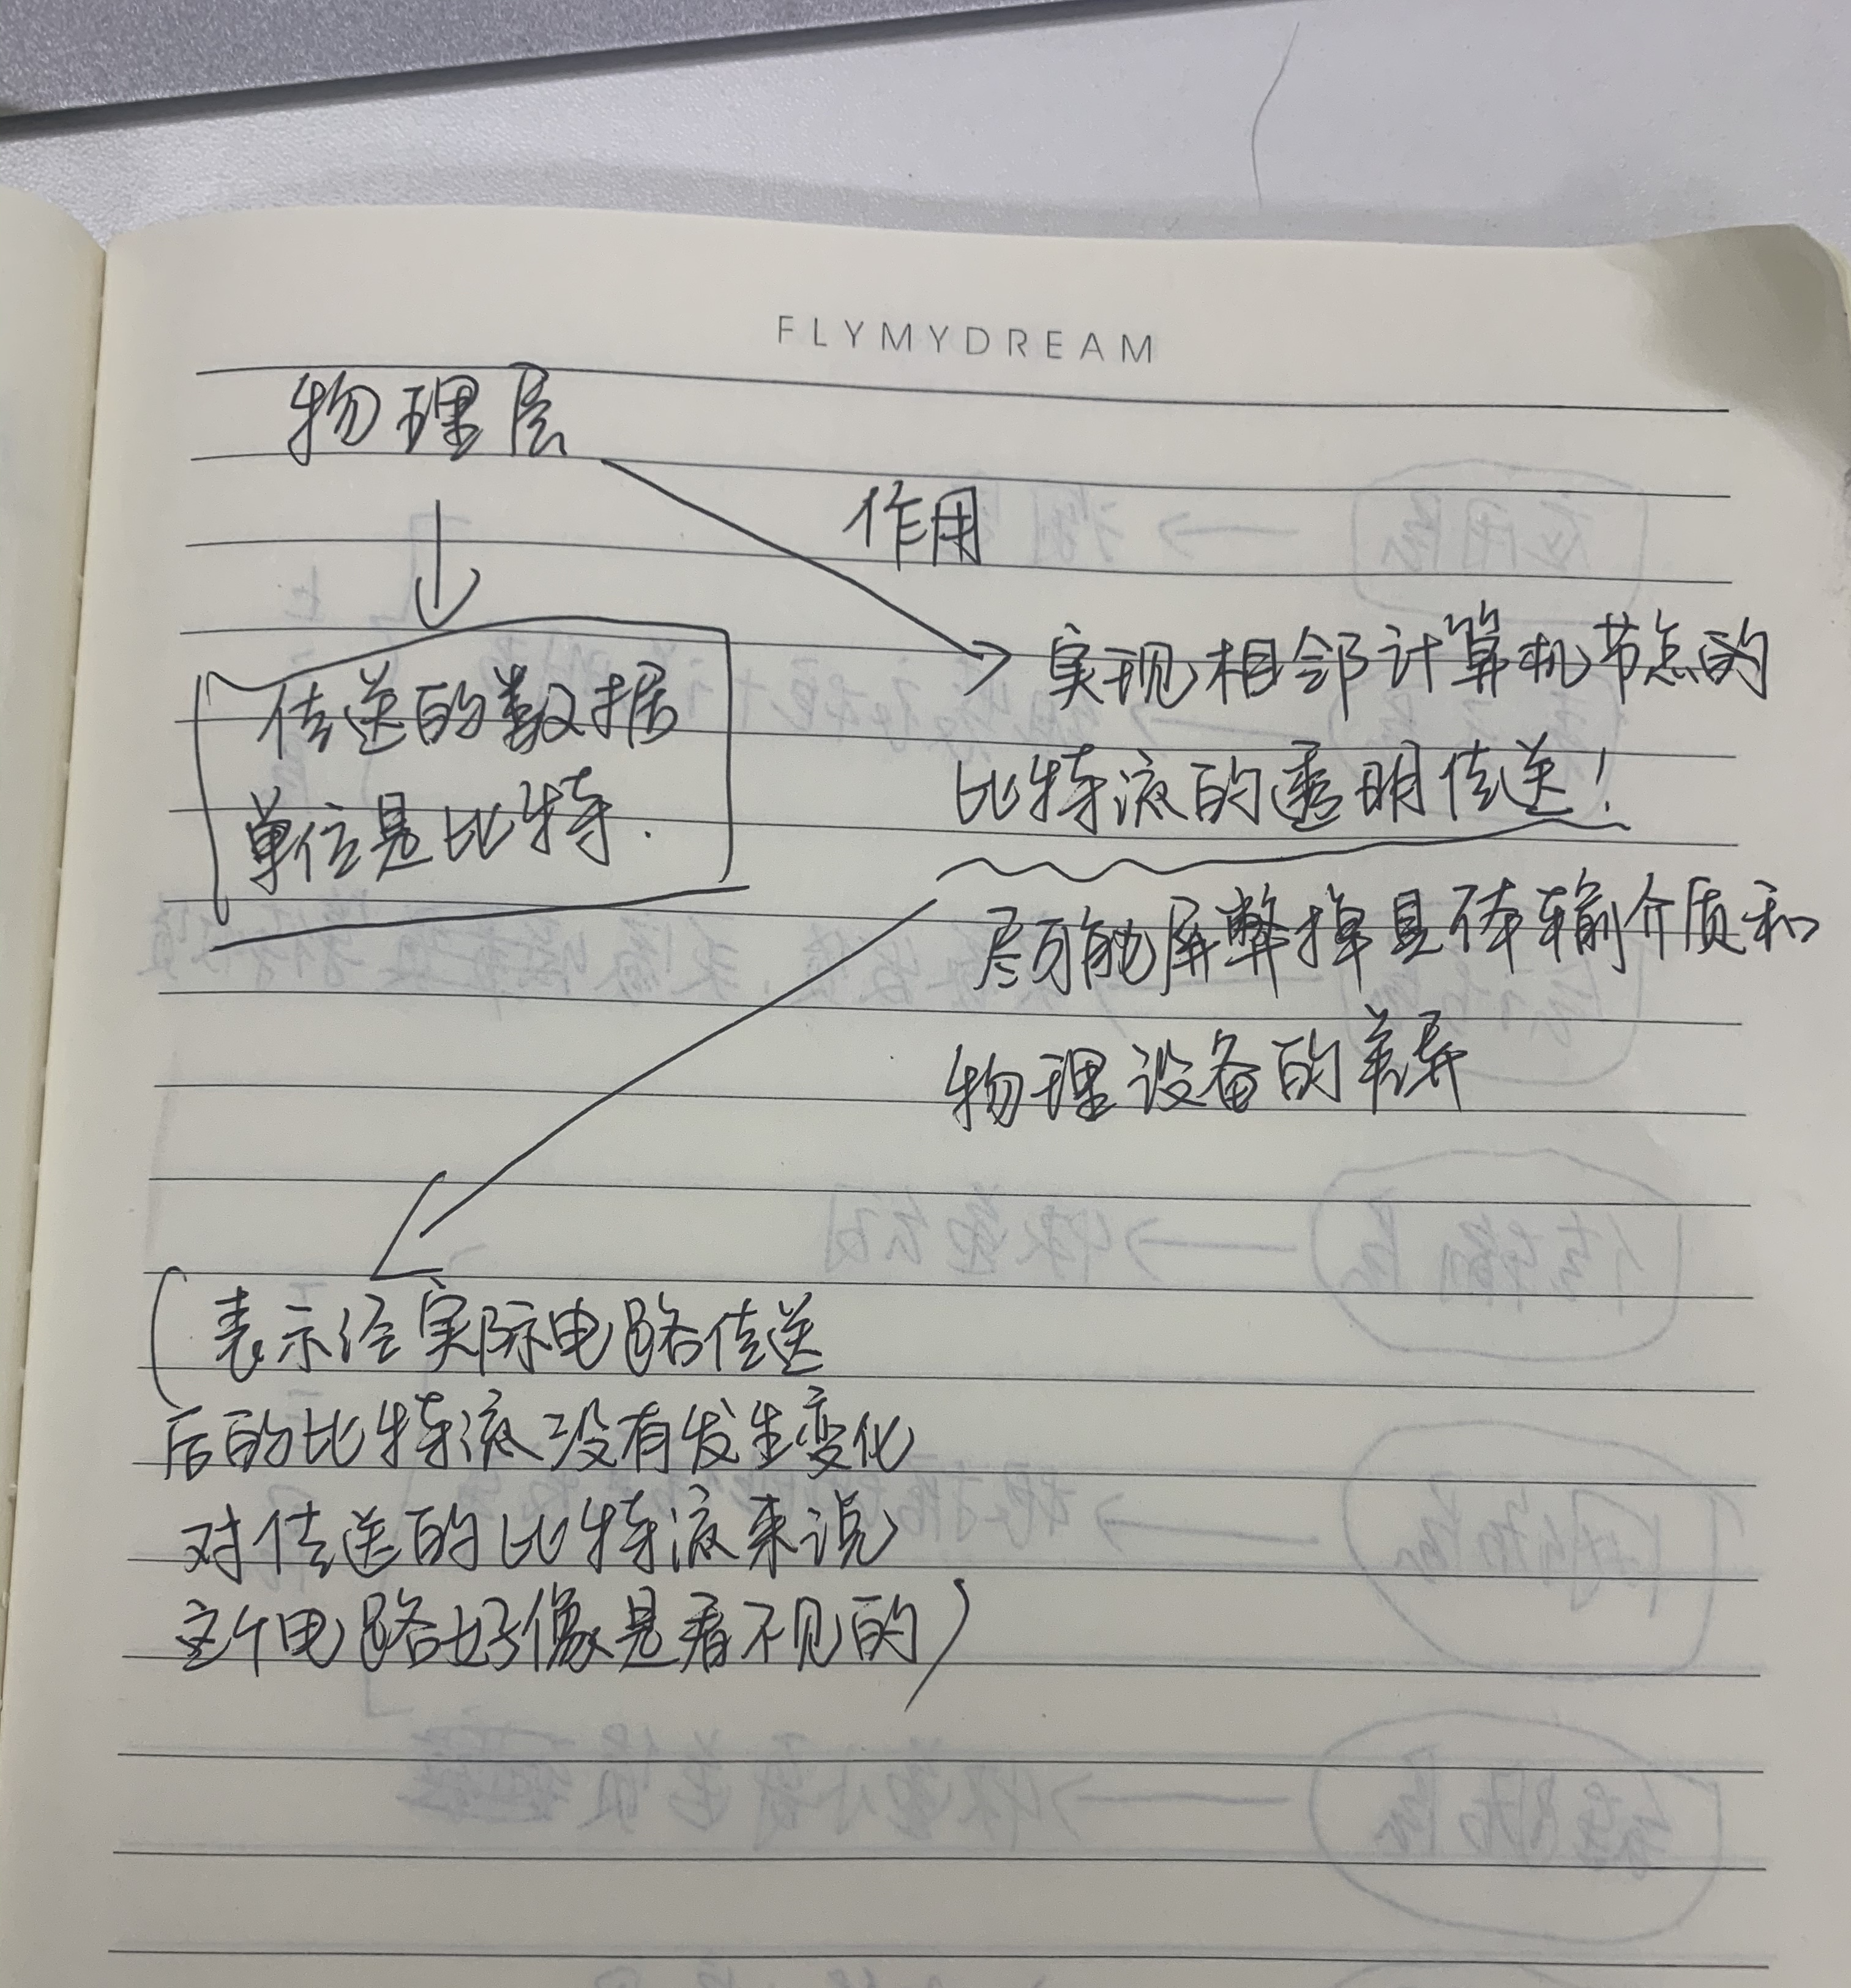 FLYMYDREAM
物理层
作用
传送的数据
单位是比特.
实现相邻计算机节点的
比特流的透明传送!
尽可能屏弊掉具体输介质和
物理设备的差异
(表示经实际电路传送
后的比特流没有发生变化
对传送的比特流来说
这个电路好像是看不见的)